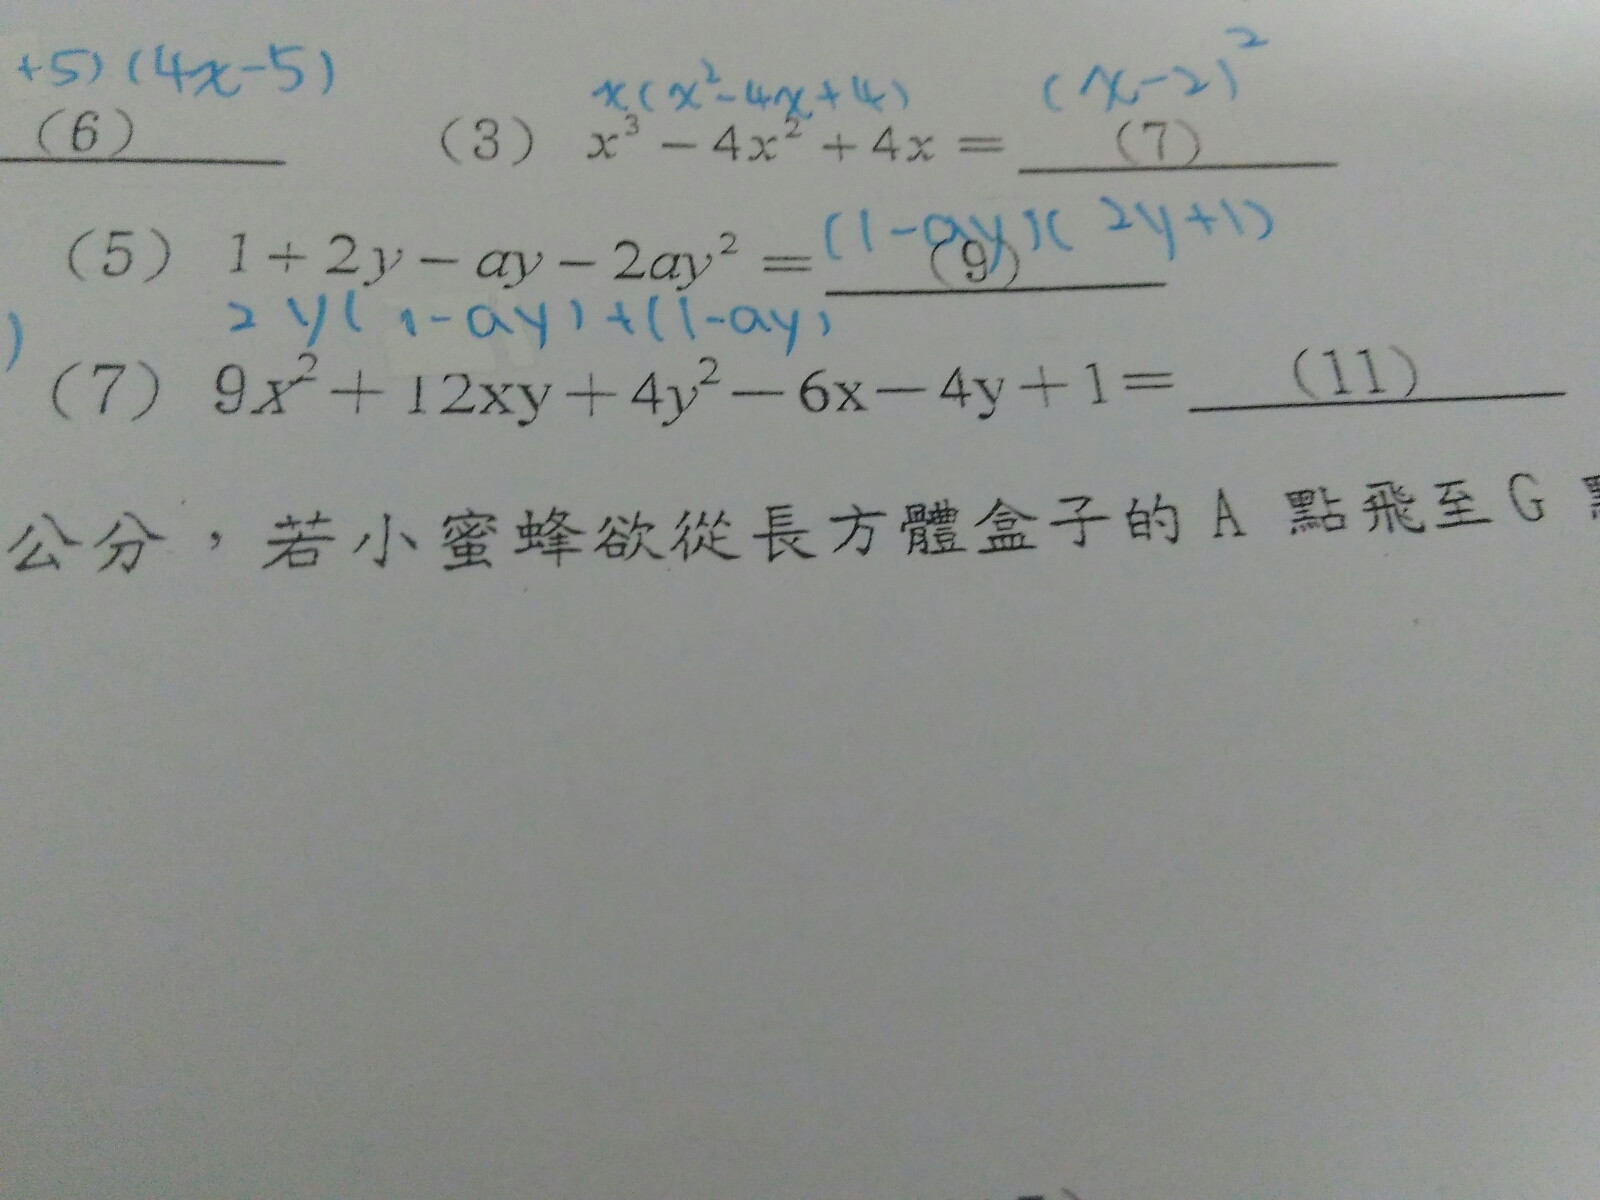 +5)(4x-5)
x(x²-4x+4) (x-2)²
(6) (3) x³-4x²+4x= (7)
(1-ay)(2y+1)
(5) 1+2y-ay-2ay²= (9)
) 2y(1-ay)+(1-ay)
(7) 9x²+12xy+4y²-6x-4y+1= (11)
公分,若小蜜蜂欲從長方體盒子的 A 點飛至 G